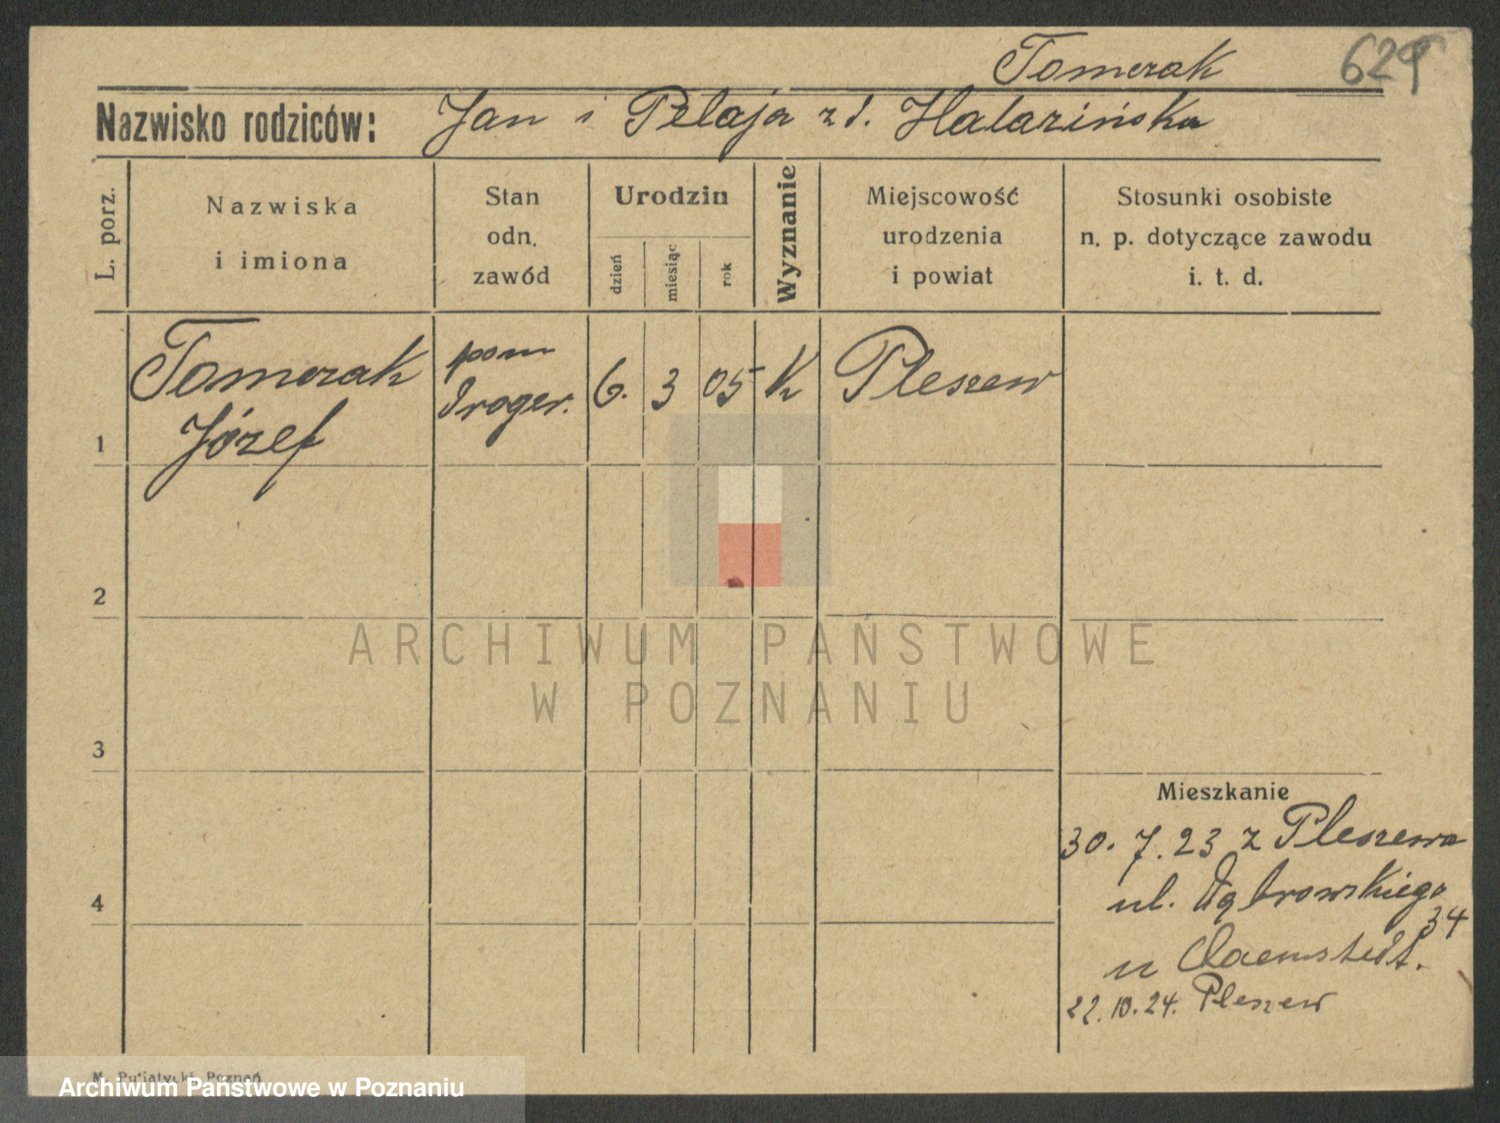 Tomerak
629
Nazwisko rodziców: Jan i Pelaja z d. Halarińska
L. porz.
Nazwiska
i imiona
Stan
odn.
zawód
Urodzin
dzień
miesiąc
rok
Wyznanie
Miejscowość
urodzenia
i powiat
Stosunki osobiste
n. p. dotyczące zawodu
i. t. d.
1
Tomerak
Józef
pom
droger.
6. 3 05 K Pleszew
2
ARCHIWUM PAŃSTWOWE
W POZNANIU
3
Mieszkanie
30. 7. 23 z Pleszewa
ul. Dąbrowskiego
34
4
u
22. 10. 24. Pleszew
M. Putiatycki Poznań
Archiwum Państwowe w Poznaniu